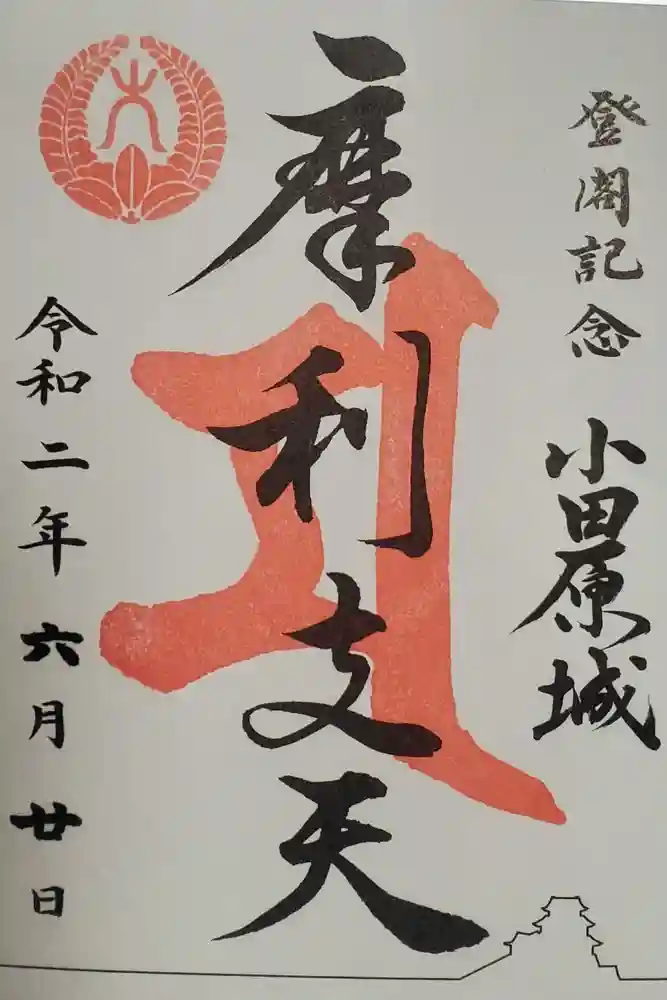 登閣記念 小田原城
摩利支天
令和二年六月廿日